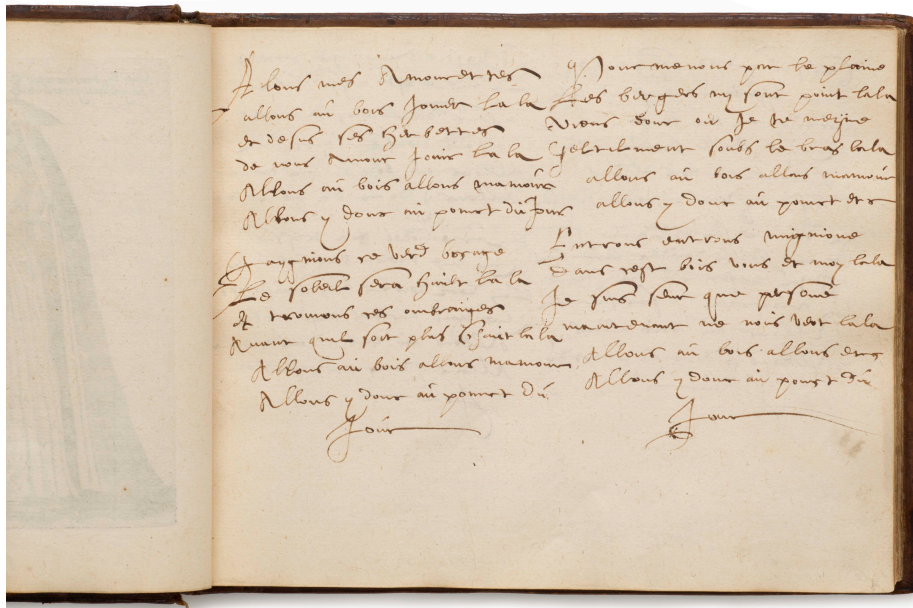 Allons mes Amourettes
allons aū bois Jouer la la
et desus ses herbettes
de nous Amour Jouir la la
Allons aū bois allons mamour
Allons y donc aū poinct dū Jour
Gaygnions ce verd bocage
Le soleil sera hault la la
et trouvons ces ombraiges
Avant quil soit plus Chault la la
Allons aū bois allons mamour
Allons y donc aū poinct dū
Joūr
pour me nous par le plaine
Les bergers ny sont point la la
Viens donc où Je te meyne
soubs le bras la la
allons aū bois allons mamour
allons y donc aū poinct etc
Entrons entrons mignione
Dans cest bois vous et moy la la
Je suis seur que persone
maintenant ne nois voit la la
Allons aū bois allons etc
Allons y donc aū poinct dū
Jour